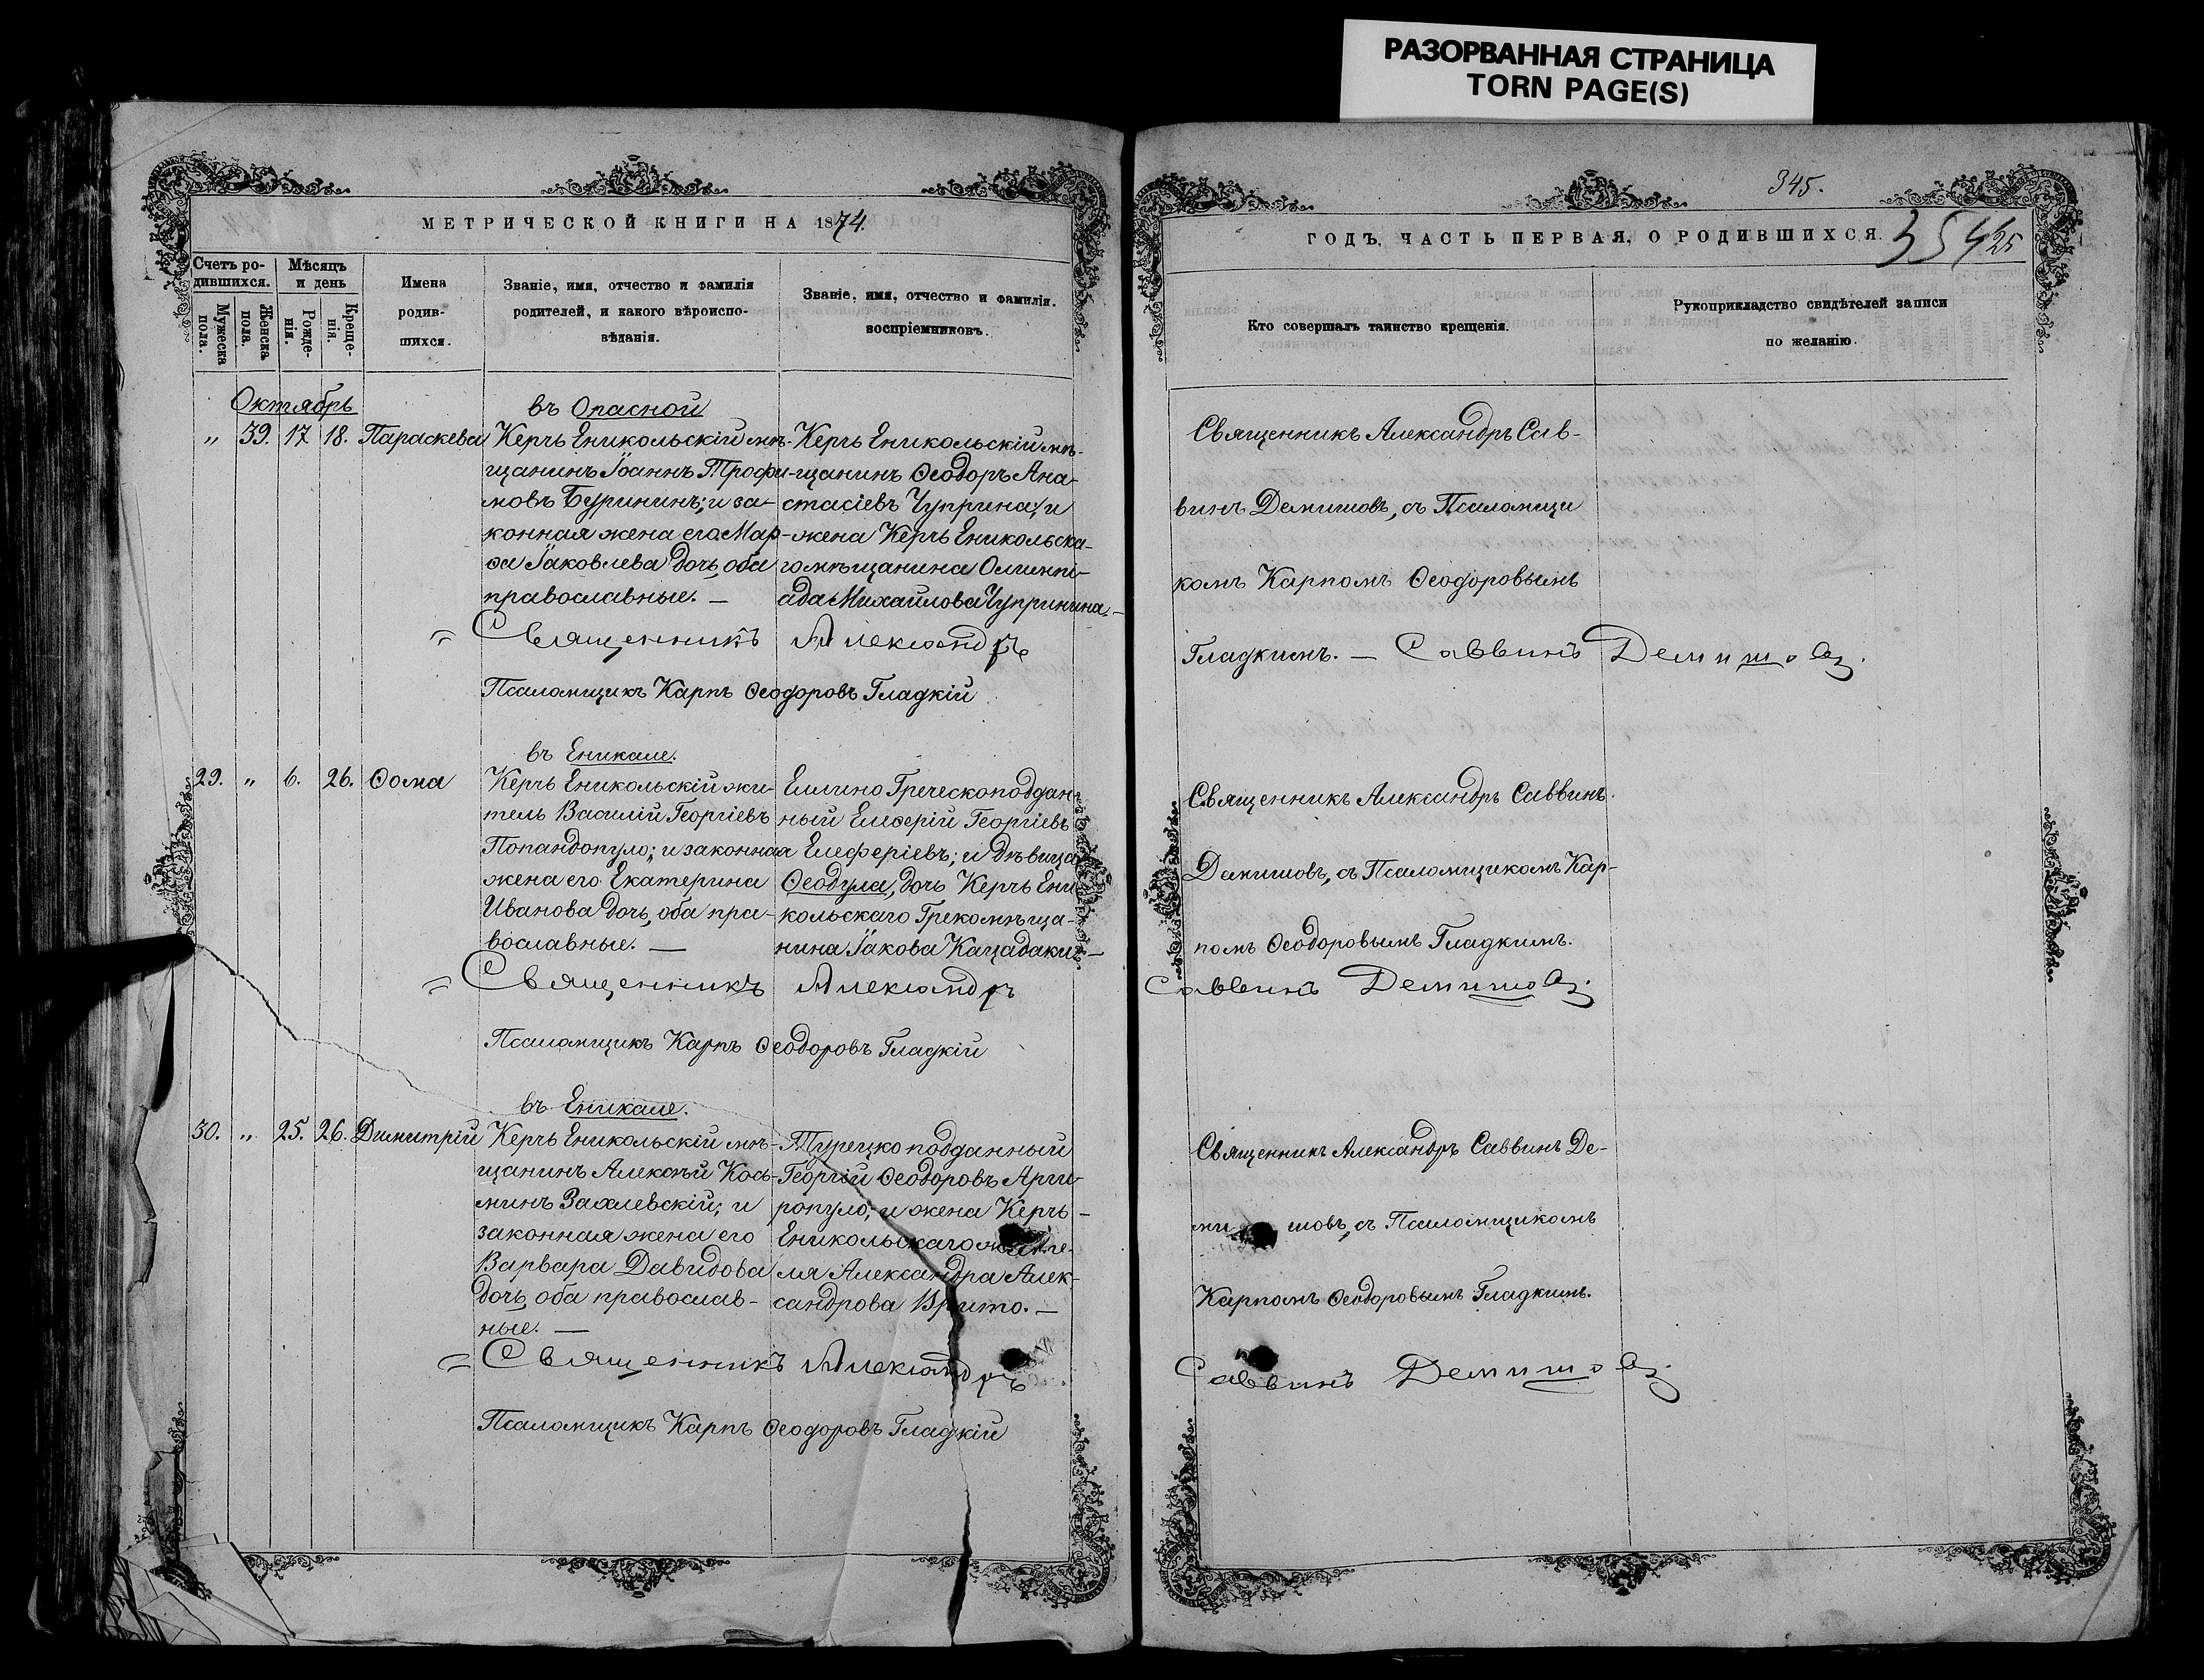 РАЗОРВАННАЯ СТРАНИЦА
TORN PAGE(S)
МЕТРИЧЕСКОЙ КНИГИ НА 1874.
Счетъ ро-
дившихся.
Мужеска
пола.
Женска
пола.
Мѣсяцъ
и день
Рожде-
нія.
Креще-
нія.
Имена
родив-
шихся.
Званіе, имя, отчество и фамилія
родителей, и какого вѣроиспо-
вѣданія.
Званіе, имя, отчество и фамилія.
воспріемниковъ.
Октябрь
въ Опасной
" 39. 17. 18. Параскева
Керчь Еникольскій мѣ-
щанинъ Іоаннъ Трофи-
мовъ Бурининъ; и за-
конная жена его Мар-
ѳа Іаковлева дочь, оба
православные. —
Керчь Еникольскій мѣ-
щанинъ Ѳеодоръ Ана-
стасіевъ Чуприна; и
жена Керчь Еникольска-
го мѣщанина Олимпі-
ада Михаилова Чупринина. —
= Священникъ Александръ
Псаломщикъ Карпъ Ѳеодоровъ Гладкій
въ Еникале.
29. " 6. 26. Ѳома
Керчь Еникольскій жи-
тель Василій Георгіевъ
Попандопуло; и законная
жена его Екатерина
Иванова дочь, оба пра-
вославные. —
Еллино Греческоподдан-
ный Елеѳерій Георгіевъ
Елеферіевъ; и дѣвица
Ѳеодула, дочь Керчь Ени-
кольскаго Грекомѣща-
нина Іакова Кацадаки. —
= Священникъ Александръ
Псаломщикъ Карпъ Ѳеодоровъ Гладкій
въ Еникале.
30. " 25. 26. Димитрій
Керчь Еникольскій мѣ-
щанинъ Алексѣй Кось-
минъ Захлевскій; и
законная жена его
Варвара Давидова
дочь, оба православ-
ные. —
Турецко подданный
Георгій Ѳеодоровъ Арги-
ропуло; и жена Керчь-
Еникольскаго жите-
ля Александра Алек-
сандрова Врито. —
= Священникъ Александръ
Псаломщикъ Карпъ Ѳеодоровъ Гладкій
345.
ГОДЪ, ЧАСТЬ ПЕРВАЯ, О РОДИВШИХСЯ.
Кто совершалъ таинство крещенія.
Рукоприкладство свидѣтелей записи
по желанію.
Священникъ Александръ Сав-
винъ Демишовъ, съ Псаломщи
комъ Карпомъ Ѳеодоровымъ
Гладкимъ. — Саввинъ Демишовъ.
Священникъ Александръ Саввинъ
Демишовъ, съ Псаломщикомъ Кар-
помъ Ѳеодоровымъ Гладкимъ.
Саввинъ Демишовъ.
Священникъ Александръ Саввинъ Де-
ми шовъ, съ Псаломщикомъ
Карпомъ Ѳеодоровымъ Гладкимъ.
Саввинъ Демишовъ.